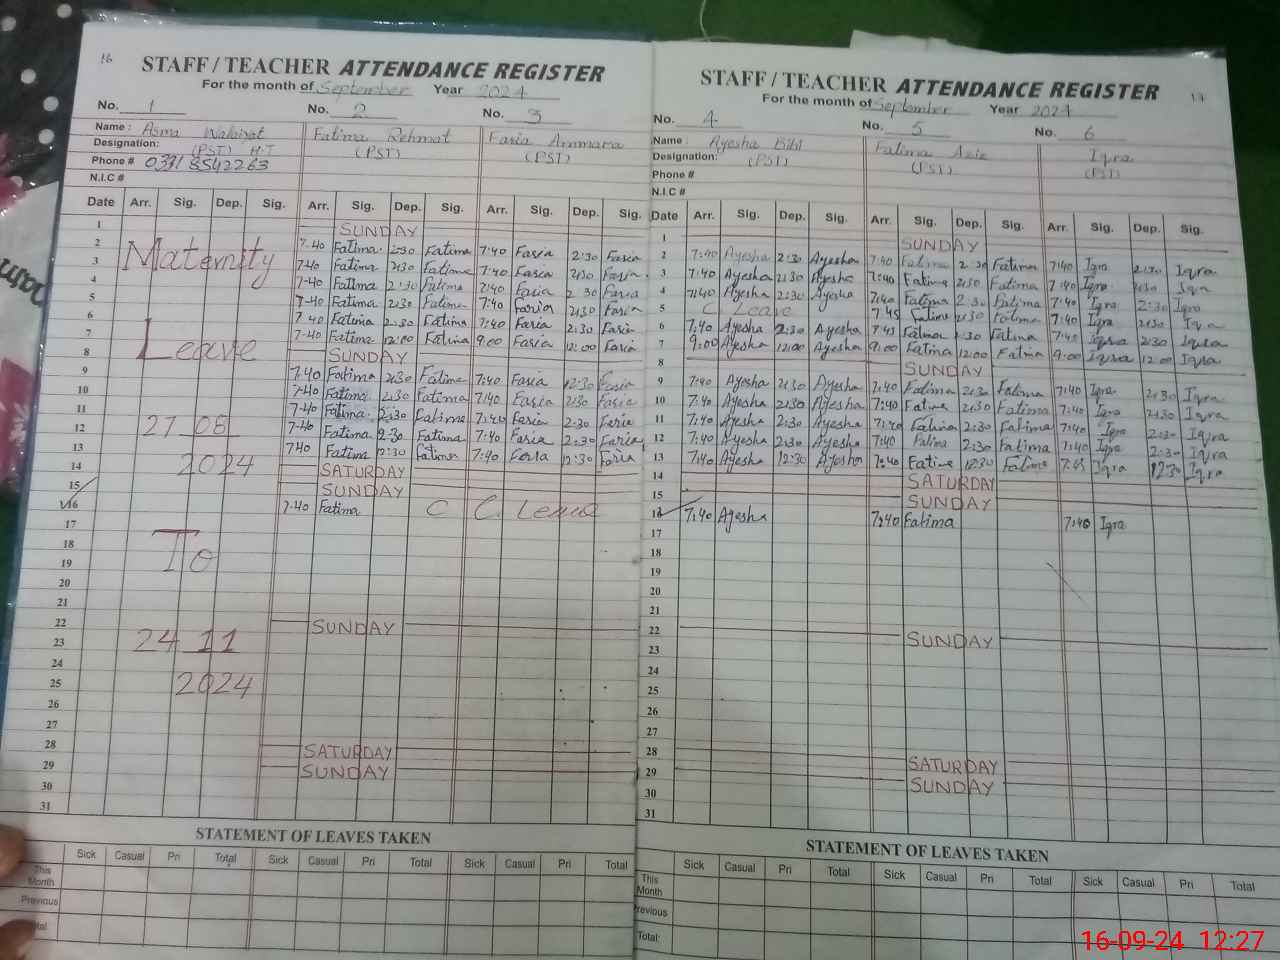 16
STAFF / TEACHER ATTENDANCE REGISTER
For the month of September Year 2024
No. 1 No. 2 No. 3
Name : Asma Walaiyat Fatima Rehmat Faria Ammara
Designation: (PST) H.T (PST) (PST)
Phone #
N.I.C #
Date Arr. Sig. Dep. Sig. Arr. Sig. Dep. Sig. Arr. Sig. Dep. Sig.
1 SUNDAY
2 7-40 Fatima 2:30 Fatima 7:40 Faria 2:30 Faria
3 7-40 Fatima 2:30 Fatima 7:40 Faria 2:30 Faria
4 7-40 Fatima 2:30 Fatima 7:40 Faria 2:30 Faria
5 7-40 Fatima 2:30 Fatima 7:40 Faria 2:30 Faria
6 7-40 Fatima 2:30 Fatima 7:40 Faria 2:30 Faria
7 7-40 Fatima 12:00 Fatima 9:00 Faria 12:00 Faria
8 SUNDAY
9 7:40 Fatima 2:30 Fatima 7:40 Faria 2:30 Faria
10 7-40 Fatima 2:30 Fatima 7:40 Faria 2:30 Faria
11 7-40 Fatima 2:30 Fatima 7:40 Faria 2:30 Faria
12 7-40 Fatima 2:30 Fatima 7:40 Faria 2:30 Faria
13 740 Fatima 12:30 Fatima 7:40 Faria 12:30 Faria
14 SATURDAY
15 SUNDAY
16 7-40 Fatima C C Leave
17
18
19
20
21
22 SUNDAY
23
24
25
26
27
28 SATURDAY
29 SUNDAY
30
31
Maternity
Leave
27 08
2024
To
24 11
2024
STATEMENT OF LEAVES TAKEN
Sick Casual Pri Total Sick Casual Pri Total Sick Casual Pri Total
This Month
Previous
17
STAFF / TEACHER ATTENDANCE REGISTER
For the month of September Year 2024
No. 4 No. 5 No. 6
Name : Ayesha Bibi Fatima Aziz Iqra
Designation: (PST) (PST) (PST)
Phone #
N.I.C #
Date Arr. Sig. Dep. Sig. Arr. Sig. Dep. Sig. Arr. Sig. Dep. Sig.
1 SUNDAY
2 7:40 Ayesha 2:30 Ayesha 7:40 Fatima 2:30 Fatima 7:40 Iqra 2:30 Iqra
3 7:40 Ayesha 2:30 Ayesha 7:40 Fatima 2:30 Fatima 7:40 Iqra 2:30 Iqra
4 7:40 Ayesha 2:30 Ayesha 7:40 Fatima 2:30 Fatima 7:40 Iqra 2:30 Iqra
5 C Leave 7:45 Fatima 2:30 Fatima 7:40 Iqra 2:30 Iqra
6 7:40 Ayesha 2:30 Ayesha 7:45 Fatima 2:30 Fatima 7:45 Iqra 2:30 Iqra
7 9:00 Ayesha 12:00 Ayesha 9:00 Fatima 12:00 Fatima 9:00 Iqra 12:00 Iqra
8 SUNDAY
9 7:40 Ayesha 2:30 Ayesha 7:40 Fatima 2:30 Fatima 7:40 Iqra 2:30 Iqra
10 7:40 Ayesha 2:30 Ayesha 7:40 Fatima 2:30 Fatima 7:40 Iqra 2:30 Iqra
11 7:40 Ayesha 2:30 Ayesha 7:40 Fatima 2:30 Fatima 7:40 Iqra 2:30 Iqra
12 7:40 Ayesha 2:30 Ayesha 7:40 Fatima 2:30 Fatima 7:40 Iqra 2:30 Iqra
13 7:40 Ayesha 12:30 Ayesha 7:40 Fatima 12:30 Fatima 7:45 Iqra 12:30 Iqra
14 SATURDAY
15 SUNDAY
16 7:40 Ayesha 7:40 Fatima 7:40 Iqra
17
18
19
20
21
22 SUNDAY
23
24
25
26
27
28 SATURDAY
29 SUNDAY
30
31
STATEMENT OF LEAVES TAKEN
Sick Casual Pri Total Sick Casual Pri Total Sick Casual Pri Total
This Month
Previous
Total:
16-09-24 12:27